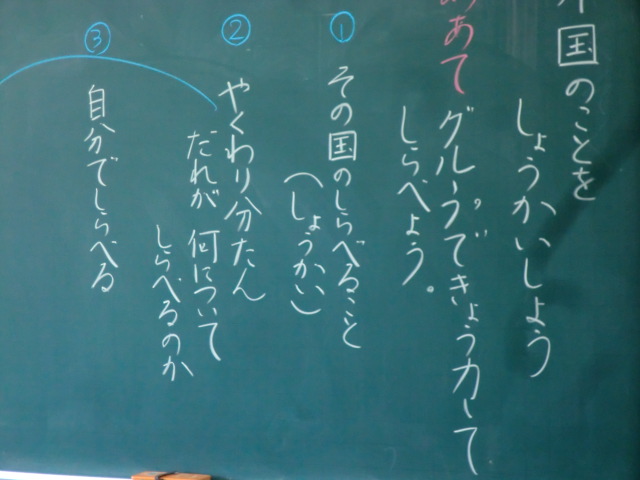 国のことを
しょうかいしよう
めあて
グループできょう力して
しらべよう。
①
その国のしらべること
(しょうかい)
②
やくわり分たん
だれが 何について
しらべるのか
③
自分でしらべる